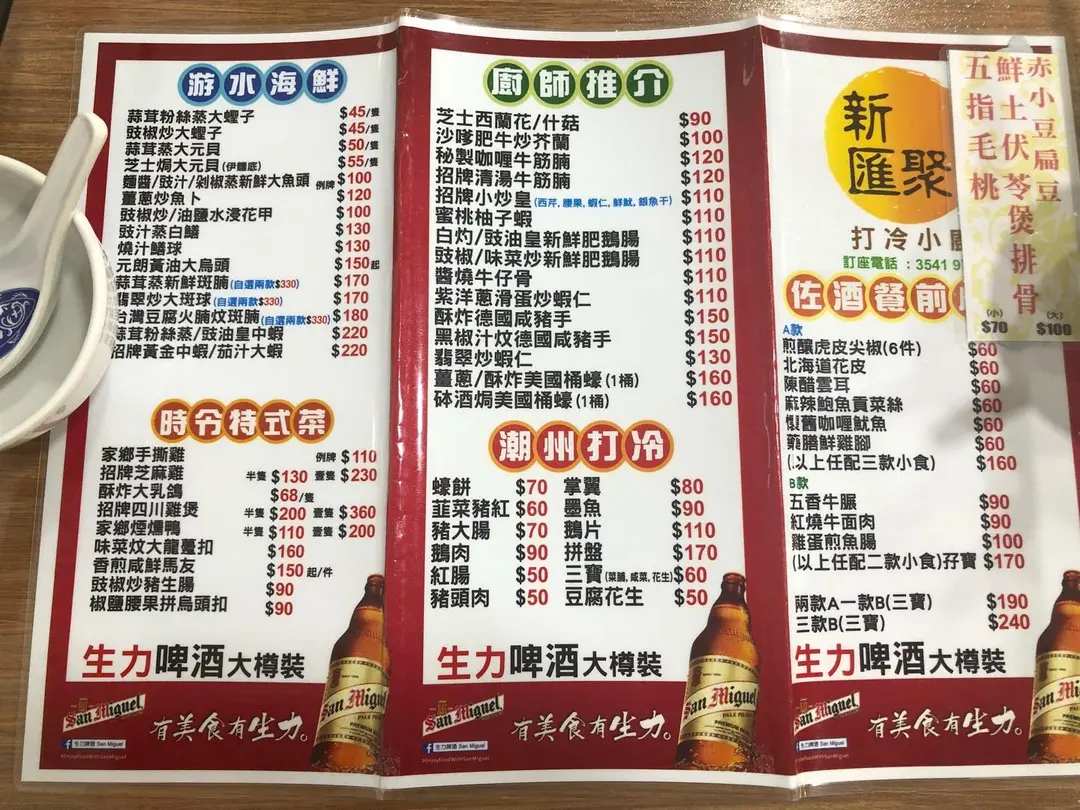 游水海鮮
蒜茸粉絲蒸大蟶子 $45/隻
豉椒炒大蟶子 $45/隻
蒜茸蒸大元貝 $50/隻
芝士焗大元貝(伊麵底) $55/隻
麵醬/豉汁/剁椒蒸新鮮大魚頭 例牌 $100
薑蔥炒魚卜 $120
豉椒炒/油鹽水浸花甲 $100
豉汁蒸白鱔 $130
燒汁鱔球 $130
元朗黃油大烏頭 $150起
蒜茸蒸新鮮斑腩(自選兩款$330) $170
翡翠炒大斑球(自選兩款$330) $170
台灣豆腐火腩炆斑腩(自選兩款$330) $180
蒜茸粉絲蒸/豉油皇中蝦 $220
招牌黃金中蝦/茄汁大蝦 $220
時令特式菜
家鄉手撕雞 例牌 $110
招牌芝麻雞 半隻 $130 壹隻 $230
酥炸大乳鴿 $68/隻
招牌四川雞煲 半隻 $200 壹隻 $360
家鄉煙燻鴨 半隻 $110 壹隻 $200
味菜炆大龍躉扣 $160
香煎咸鮮馬友 $150起/件
豉椒炒豬生腸 $90
椒鹽腰果拼烏頭扣 $90
生力啤酒大樽裝
San Miguel
有美食有生力。
生力啤酒 San Miguel
#EnjoyFoodWithSanMiguel
廚師推介
芝士西蘭花/什菇 $90
沙嗲肥牛炒芥蘭 $100
秘製咖喱牛筋腩 $120
招牌清湯牛筋腩 $120
招牌小炒皇(西芹, 腰果, 蝦仁, 鮮魷, 銀魚干) $110
蜜桃柚子蝦 $110
白灼/豉油皇新鮮肥鵝腸 $110
豉椒/味菜炒新鮮肥鵝腸 $110
醬燒牛仔骨 $110
紫洋蔥滑蛋炒蝦仁 $110
酥炸德國咸豬手 $150
黑椒汁炆德國咸豬手 $150
翡翠炒蝦仁 $130
薑蔥/酥炸美國桶蠔(1桶) $160
砵酒焗美國桶蠔(1桶) $160
潮州打冷
蠔餅 $70 掌翼 $80
韮菜豬紅 $60 墨魚 $90
豬大腸 $70 鵝片 $110
鵝肉 $90 拼盤 $170
紅腸 $50 三寶(菜脯, 咸菜, 花生) $60
豬頭肉 $50 豆腐花生 $50
生力啤酒大樽裝
San Miguel
有美食有生力。
生力啤酒 San Miguel
#EnjoyFoodWithSanMiguel
新
匯聚
打冷小
訂座電話 : 3541 9
佐酒餐前
A款
煎釀虎皮尖椒(6件) $60
北海道花皮 $60
陳醋雲耳 $60
麻辣鮑魚貢菜絲 $60
懷舊咖喱魷魚 $60
藥膳鮮雞腳 $60
(以上任配三款小食) $160
B款
五香牛𦟌 $90
紅燒牛面肉 $90
雞蛋煎魚腸 $100
(以上任配二款小食)孖寶 $170
兩款A一款B(三寶) $190
三款B(三寶) $240
生力啤酒大樽裝
San Miguel
有美食有生力。
生力啤酒 San Miguel
赤小豆扁豆
鮮土伏苓煲排骨
五指毛桃
(小) $70
(大) $100